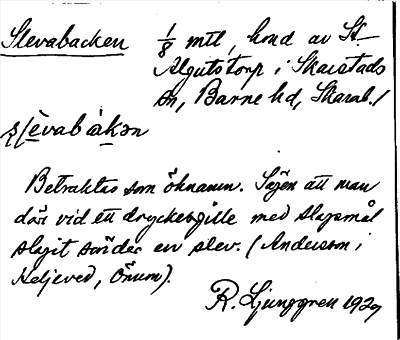 Slevabacken 1/8 mtl, hmd av St.
Algutstorp i Skarstads
sn, Barne hd, Skarab. l
slèvabàkən
Betraktas som öknamn. Sägen att man
där vid ett dryckesgille med slagsmål
slagit sönder en slev. (Andersson i
Heljeved, Önum).
R. Ljunggren 1929